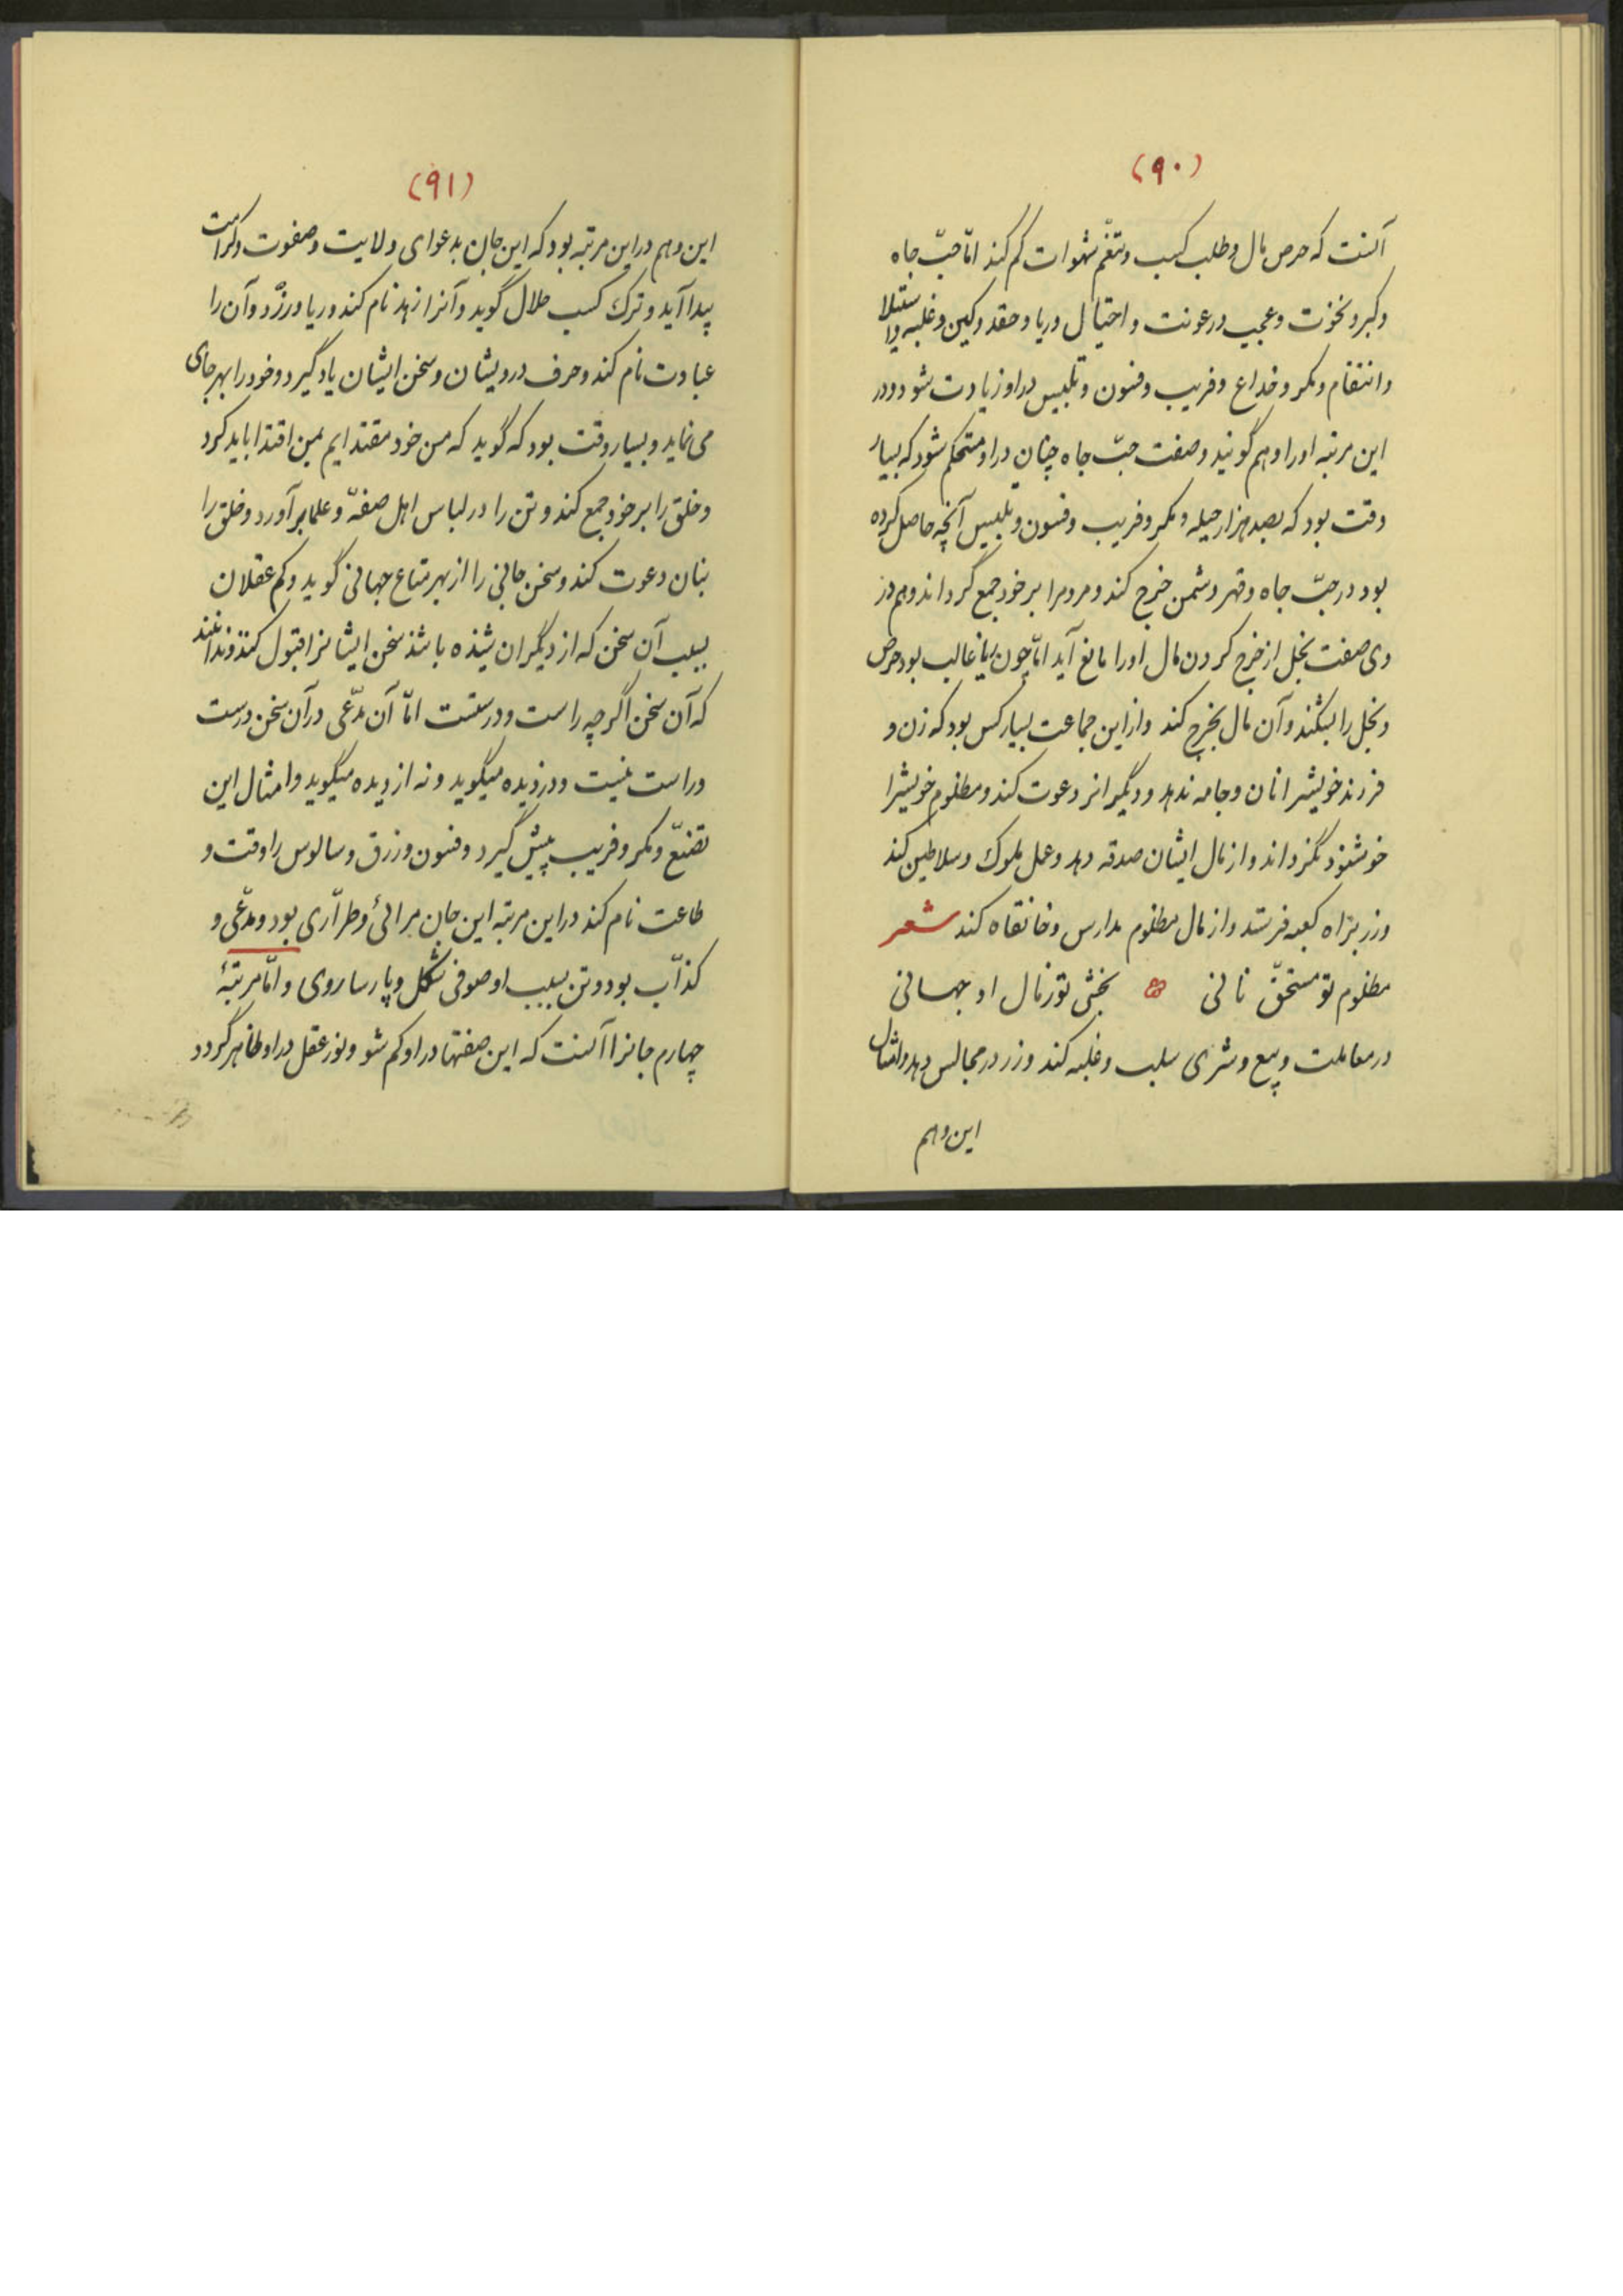 (۹۰)
آنست که حرص مال و طلب کسب و تنعّم شهوات کم کند امّا حبّ جاه
و کبر و نخوت و عجب و رعونت و احتیال و ریا و حقد و کین و غلبه و استیلا
و انتقام و مکر و خداع و فریب و فسون و تلبیس در او زیادت شود و در
این مرتبه او را وهم گویند و صفت حبّ جاه چنان در او مستحکم شود که بسیار
وقت بود که بصد هزار حیله و مکر و فریب و فسون و تلبیس آنچه حاصل کرده
بود در حبّ جاه و قهر دشمن خرج کند و مردم را بر خود جمع گرداند و هم در
وی صفت بخل از خرج کردن مال او را مانع آید امّا چون ریا غالب بود حرص
و بخل را بشکند و آن مال بخرج کند و از این جماعت بسیار کس بود که زن و
فرزند خویش را نان و جامه ندهد و دیگرانرا دعوت کند و مظلوم خویش را
خوشنود نگرداند و از مال ایشان صدقه دهد و عمل ملوک و سلاطین کند
و زر براه کعبه فرستد و از مال مظلوم مدارس و خانقاه کند شعر
مظلوم تو مستحقّ نانی بخش تو ز مال او جهانی
در معاملت و بیع و شری سلب و غلبه کند و زر در مجالس دهد و امثال
این وهم
(۹۱)
این وهم در این مرتبه بود که این جان بدعوای ولایت و صفوت و کرامت
پیدا آید و ترک کسب حلال گوید و آنرا زهد نام کند و ریا ورزد و آن را
عبادت نام کند و حرف درویشان و سخن ایشان یاد گیرد و خود را بهر جای
می نماید و بسیار وقت بود که گوید که من خود مقتدایم بمن اقتدا باید کرد
و خلق را بر خود جمع کند و تن را در لباس اهل صفّه و علما بر آورد و خلق را
بنان دعوت کند و سخن جانی را از بهر متاع جهانی گوید و کم عقلان
بسبب آن سخن که از دیگران شنیده باشند سخن ایشانرا قبول کنند و ندانند
که آن سخن اگر چه راست و درستست امّا آن مدّعی در آن سخن درست
و راست نیست و دزدیده میگوید و نه از دیده میگوید و امثال این
تصنّع و مکر و فریب پیش گیرد و فسون و زرق و سالوس را وقت و
طاعت نام کند در این مرتبه این جان مرائی و طرّاری بود و مدّعی و
کذّاب بود و تن بسبب او صوفی شکل و پارسا روی و امّا مرتبهٔ
چهارم جانرا آنست که این صفتها در او کم شو و نور عقل در او ظاهر گردد